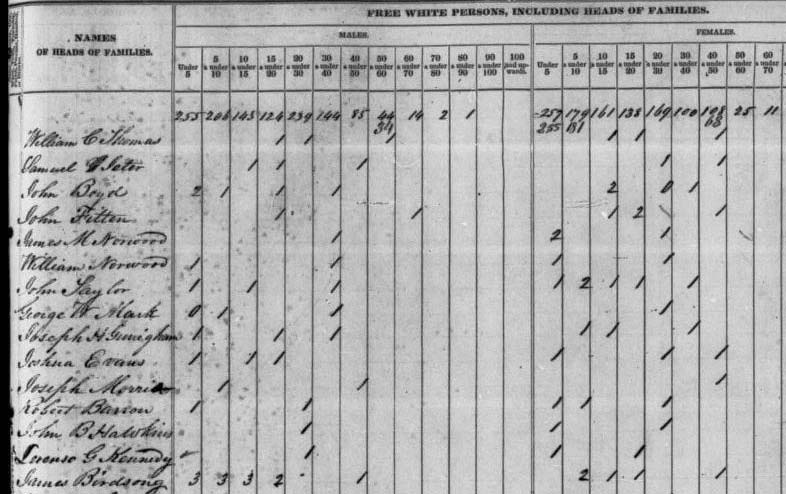 FREE WHITE PERSONS, INCLUDING HEADS OF FAMILIES.
NAMES
OF HEADS OF FAMILIES.
MALES.
FEMALES.
Under 5 5 & under 10 10 & under 15 15 & under 20 20 & under 30 30 & under 40 40 & under 50 50 & under 60 60 & under 70 70 & under 80 80 & under 90 90 & under 100 100 and upwards. Under 5 5 & under 10 10 & under 15 15 & under 20 20 & under 30 30 & under 40 40 & under 50 50 & under 60 60 & under 70
255 206 143 124 239 144 85 44 14 2 1 257 179 161 138 169 100 108 25 11
34 255 131 68
William C Thomas 1 1 1 1 1 1
Samuel Jeter 1 1 1 1 1
John Boyd 2 1 1 1 2 0 1
John Fitten 1 1 1 2 1
James M Norwood 1 2 1
William Norwood 1 1 1 1
John Taylor 1 1 1 1 2 1 1 1
George W Mark 0 1 1 1
Joseph H 1 1 1 1 1 1
Joshua Evans 1 1 1 1 1 1
Joseph Morris 1 1 1
Robert Barron 1 1 1 1 1
John B Hawkins 1 1 1
Lorenso G Kennedy 1 1 1
James Birdsong 3 3 3 2 1 2 1 1 1